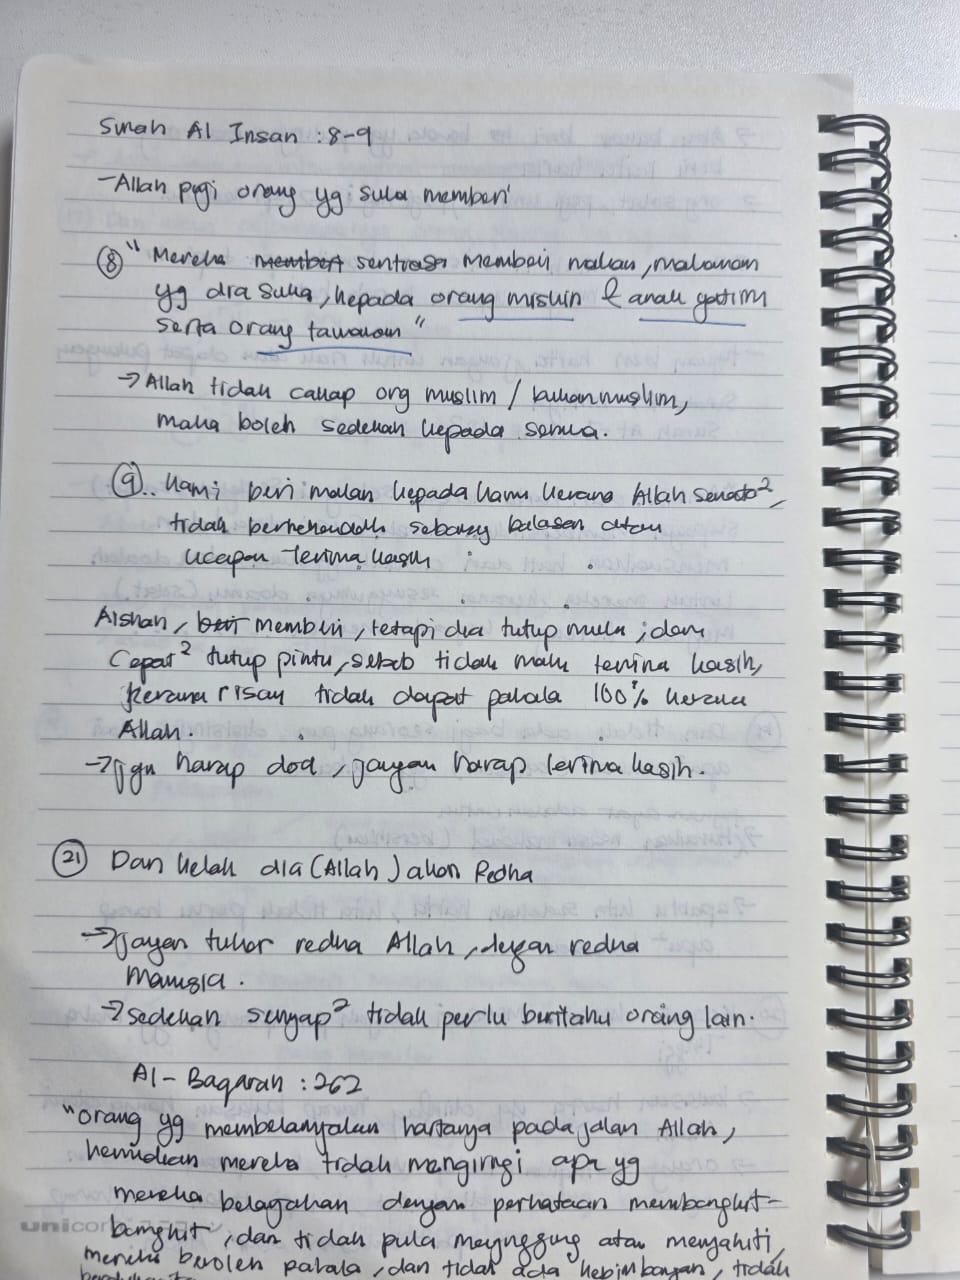 Surah Al Insan : 8-9
- Allah puji orang yg suka memberi
⑧ " Mereka sentiasa memberi makan, makanan
yg dia suka, kepada orang miskin & anak yatim
serta orang tawanan "
→ Allah tidak cakap org muslim / bukan muslim,
maka boleh sedekah kepada semua.
⑨.. Kami beri makan kepada kamu kerana Allah semata²,
tidak berkehendak sebarang balasan atau
ucapan terima kasih.
Aishah, memberi, tetapi dia tutup muka ; dan
Cepat² tutup pintu, sebab tidak mahu terima kasih,
kerana risau tidak dapat pahala 100% kerana
Allah.
→ Jgn harap doa, jangan harap terima kasih.
㉑ Dan kelak dia (Allah) akan Redha
→ Jangan tukar redha Allah, dengan redha
Manusia.
→ Sedekah senyap² tidak perlu beritahu orang lain.
Al-Baqarah : 262
" orang yg membelanjakan hartanya pada jalan Allah,
kemudian mereka tidak mengiringi apa yg
mereka belanjakan dengan perkataan membangkit-
bangkit, dan tidak pula menyakiti,
mereka beroleh pahala, dan tidak ada kebimbangan, tidak
unicorn